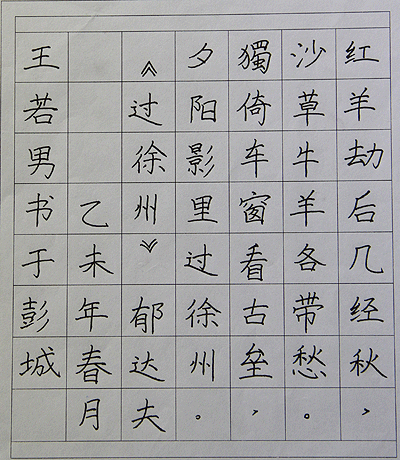 红羊劫后几经秋，
沙草牛羊各带愁。
獨倚车窗看古垒，
夕阳影里过徐州。
《过徐州》郁达夫
乙未年春月
王若男书于彭城